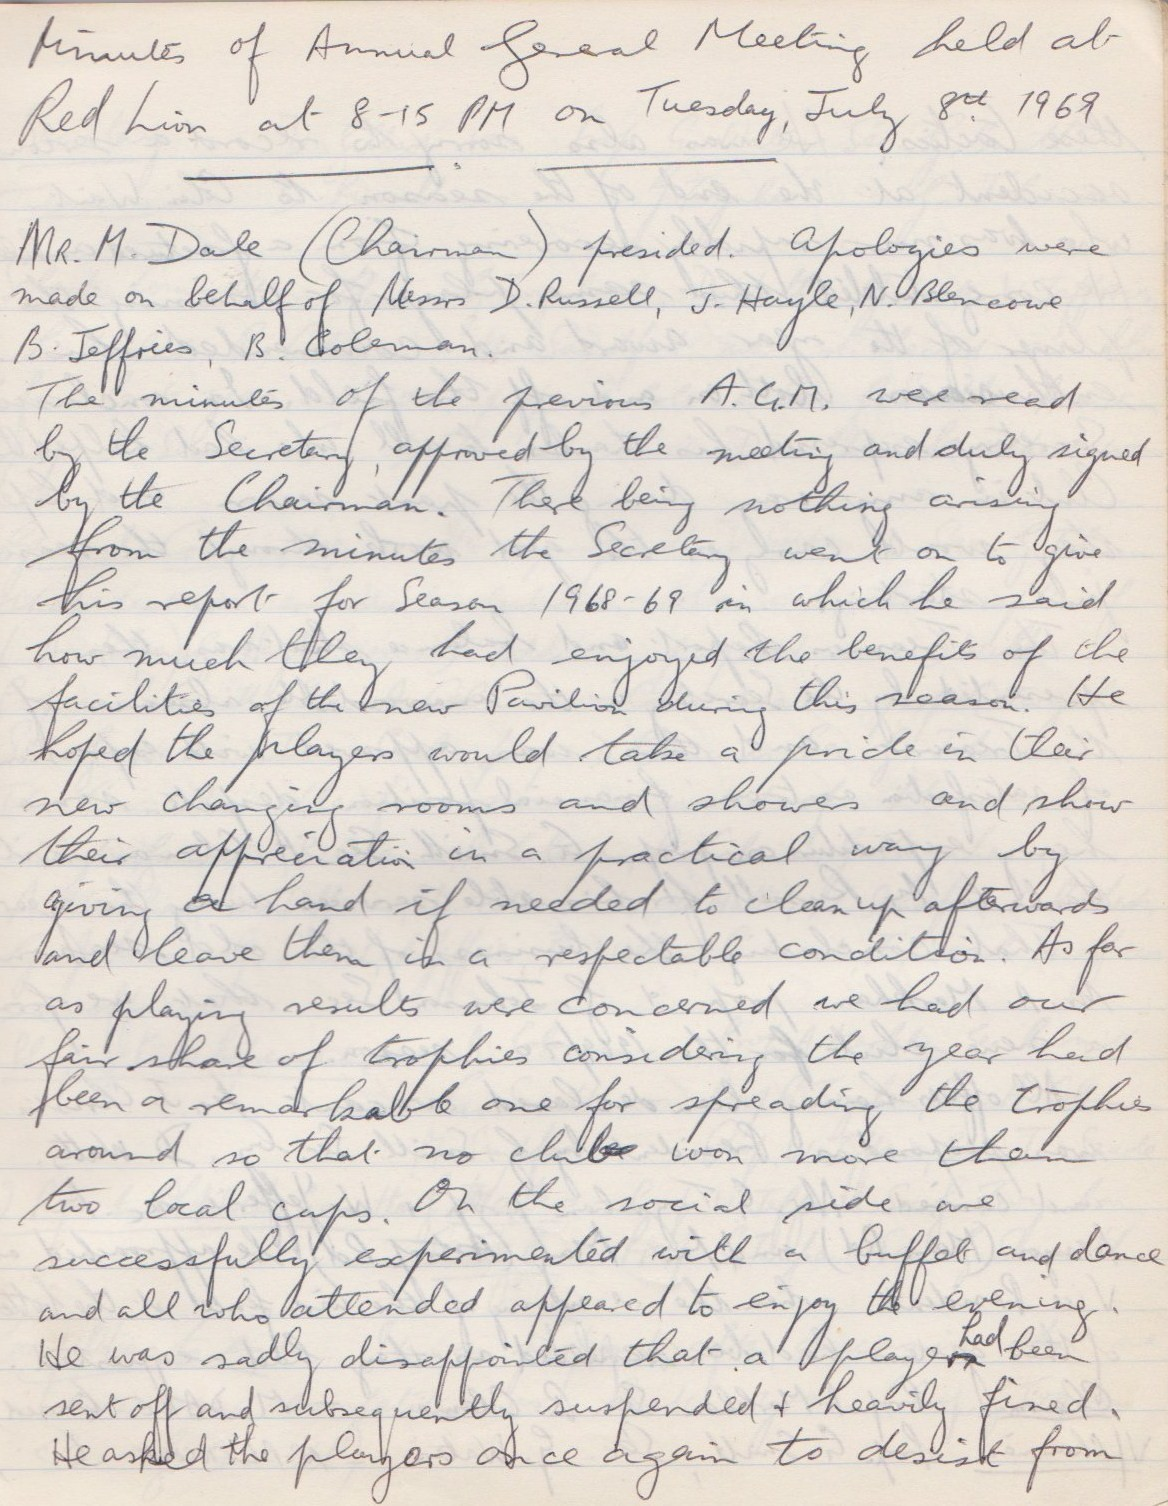 Minutes of Annual General Meeting held at
Red Lion at 8-15 PM on Tuesday, July 8th. 1969
MR. M. Dale (Chairman) presided. Apologies were
made on behalf of Messrs D. Russell, J. Hayle, N. Blencowe
B. Jeffries, B. Coleman.
The minutes of the previous A.G.M. were read
by the Secretary, approved by the meeting and duly signed
by the Chairman. There being nothing arising
from the minutes the Secretary went on to give
his report for Season 1968-69 in which he said
how much they had enjoyed the benefits of the
facilities of the new Pavilion during this season. He
hoped the players would take a pride in their
new changing rooms and showers and show
their appreciation in a practical way by
giving a hand if needed to clean up afterwards
and leave them in a respectable condition. As far
as playing results were concerned we had our
fair share of trophies considering the year had
been a remarkable one for spreading the trophies
around so that no club won more than
two local cups. On the social side we
successfully experimented with a buffet and dance
and all who attended appeared to enjoy the evening.
He was sadly disappointed that a player had been
sent off and subsequently suspended + heavily fined.
He asked the players once again to desist from